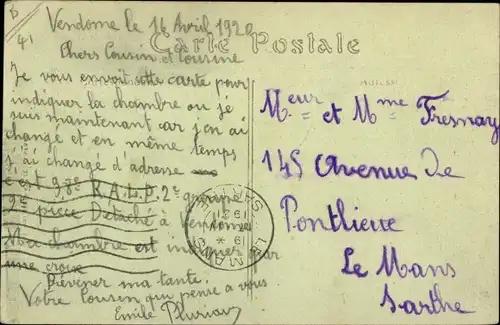 B
41
Vendome le 14 Avril 1920
Carte Postale
Chers Cousin et Cousine
Je vous envoit cette carte pour
indiquer la chambre ou je
suis maintenant car j'en ai
changé et en même temps
j'ai changé d'adresse
c'est 9, R.A.L.P. 2e
2e piece Detaché à Vendome
Ma chambre est indiquer par
une croix
Prévener ma tante.
Votre Cousin qui pense a vous
Emile
Meur et Mme Fresnay
145 Avenue de
Pontlieue
Le Mans
Sarthe
LE MANS
SARTHE